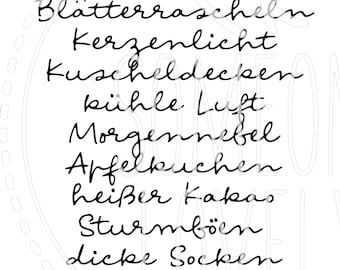 Blätterrascheln
Kerzenlicht
Kuscheldecken
kühle Luft
Morgennebel
Apfelkuchen
heißer Kakao
Sturmböen
dicke Socken